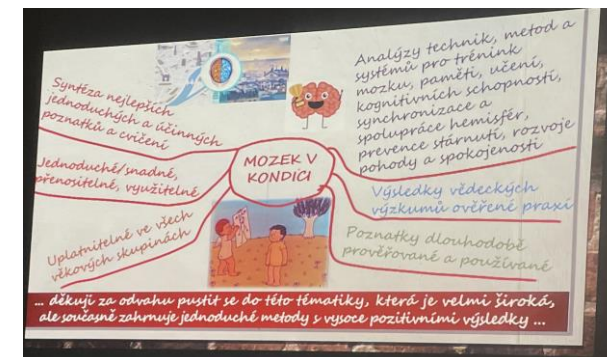 Syntéza nejlepších
jednoduchých a účinných
poznatků a cvičení
Jednoduché/snadné,
přenositelné, využitelné,
Uplatnitelné ve všech
věkových skupinách
MOZEK V
KONDICI
Analýzy technik, metod a
systémů pro trénink
mozku, paměti, učení,
kognitivních schopností,
synchronizace a
spolupráce hemisfér,
prevence stárnutí, rozvoje
pohody a spokojenosti
Výsledky vědeckých
výzkumů ověřené praxí
Poznatky dlouhodobě
prověřované a používané
... děkuji za odvahu pustit se do této tématiky, která je velmi široká,
ale současně zahrnuje jednoduché metody s vysoce pozitivními výsledky ...